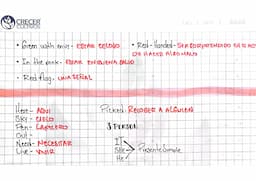 CRECER
• Green with envy - ESTAR CELOSO
• Red-Handed - SER SORPRENDIDO EN EL ACTO DE HACER ALGO MALO
• In the pink - ESTAR EN BUENA SALUD
• Red flag - UNA SEÑAL
Here - AQUÍ
Sky - CIELO
Pen - LAPICERO
Out -
Need - NECESITAR
Live - VIVIR
Picked - RECOGER A ALGUIEN
3 PERSON
IT
She
He
Presente Simple